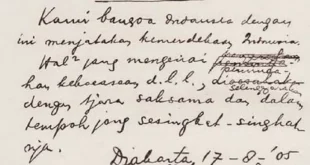 Kami bangsa Indonesia dengan
ini menjatakan kemerdekaan Indonesia.
Hal² jang mengenai
han kekoeasaan d.l.l.,
dengan tjara saksama dan dalam
tempoh jang sesingkat-singkat
nja.
Djakarta, 17-8-'05